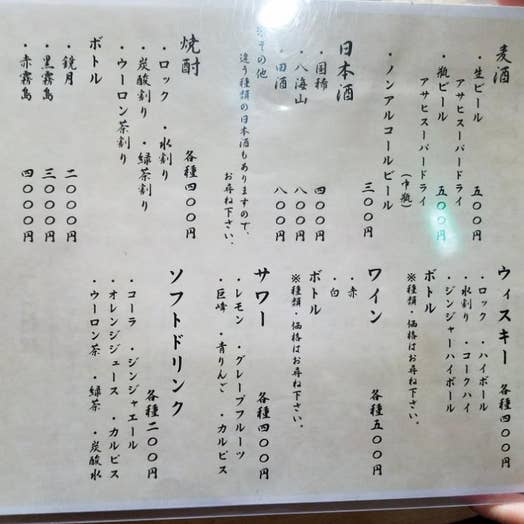 麦酒
・生ビール 五〇〇円
アサヒスーパードライ
・瓶ビール 五〇〇円
アサヒスーパードライ
(中瓶)
・ノンアルコールビール 三〇〇円
日本酒
・国稀 四〇〇円
・八海山 八〇〇円
・田酒 八〇〇円
※その他
違う種類の日本酒もありますので、
お尋ね下さい。
焼酎 各種四〇〇円
・ロック ・水割り
・炭酸割り ・緑茶割り
・ウーロン茶割り
ボトル
・鏡月 二〇〇〇円
・黒霧島 三〇〇〇円
・赤霧島 四〇〇〇円
ウィスキー 各種四〇〇円
・ロック ・ハイボール
・水割り ・コークハイ
・ジンジャーハイボール
ボトル
※種類・価格はお尋ね下さい。
ワイン 各種五〇〇円
・赤
・白
ボトル
※種類・価格はお尋ね下さい。
サワー 各種四〇〇円
・レモン ・グレープフルーツ
・巨峰 ・青りんご ・カルピス
ソフトドリンク 各種二〇〇円
・コーラ ・ジンジャエール
・オレンジジュース ・カルピス
・ウーロン茶 ・緑茶 ・炭酸水